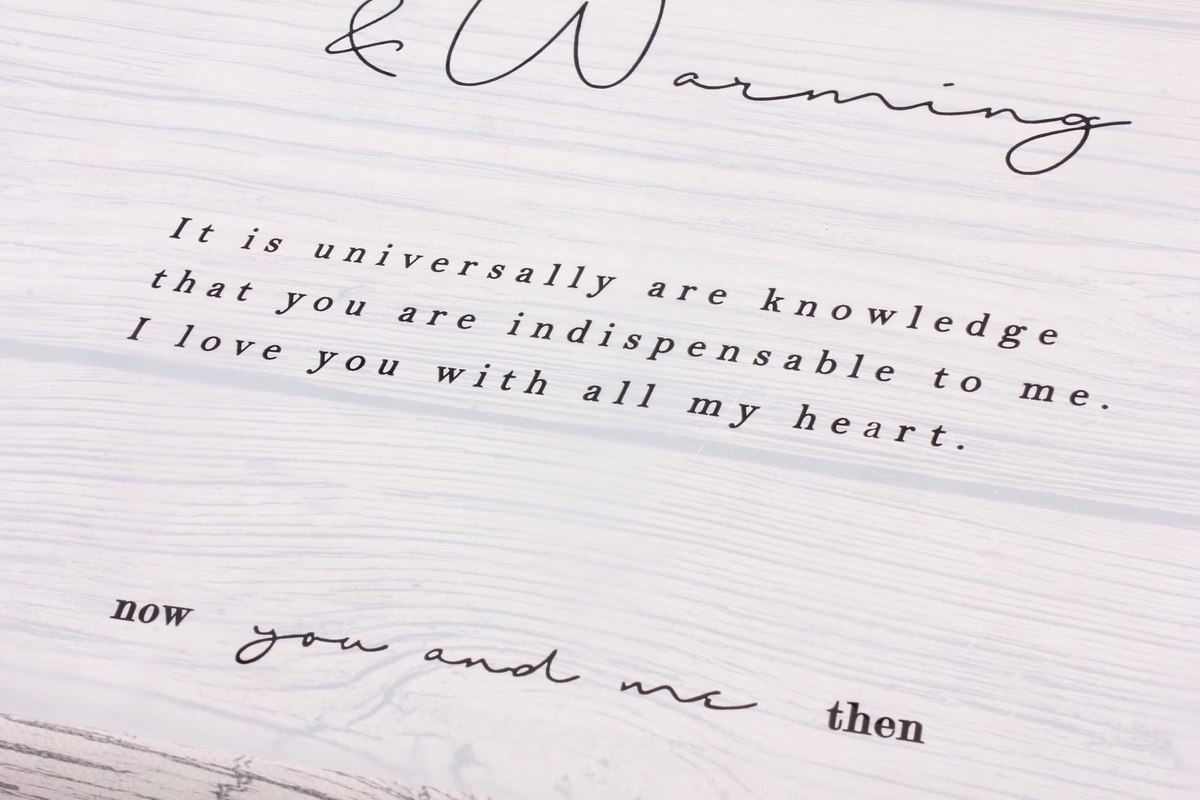 & Warming
It is universally are knowledge
that you are indispensable to me.
I love you with all my heart.
now you and me then